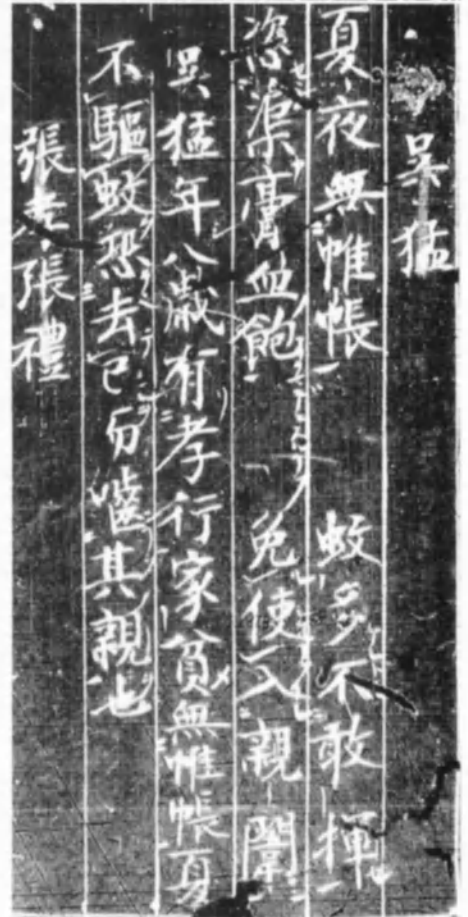 吳猛
夏夜無帷帳 蚊多不敢揮
恣渠膏血飽 免使入親闈
吳猛年八歳有孝行家貧無帷帳身
不驅蚊恐去已而噬其親也
張孝張禮